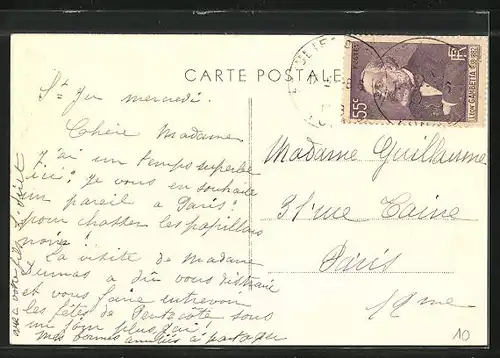 CARTE POSTALE
55c
POSTES
RF
LEON GAMBETTA
St Jn mercredi.
Chère Madame
j'ai un temps superbe
ici; je vous en souhaite
un pareil à Paris!
pour chasser les papillons
noirs!
La visite de Madame
Dumas a dû vous distraire
et vous faire entrevoir
les fêtes de Pentecôte sous
un jour plus gai!
mes bonnes amitiés à partager
avec votre fils
Madame Guillaume
31 rue Taine
Paris
12 me
10